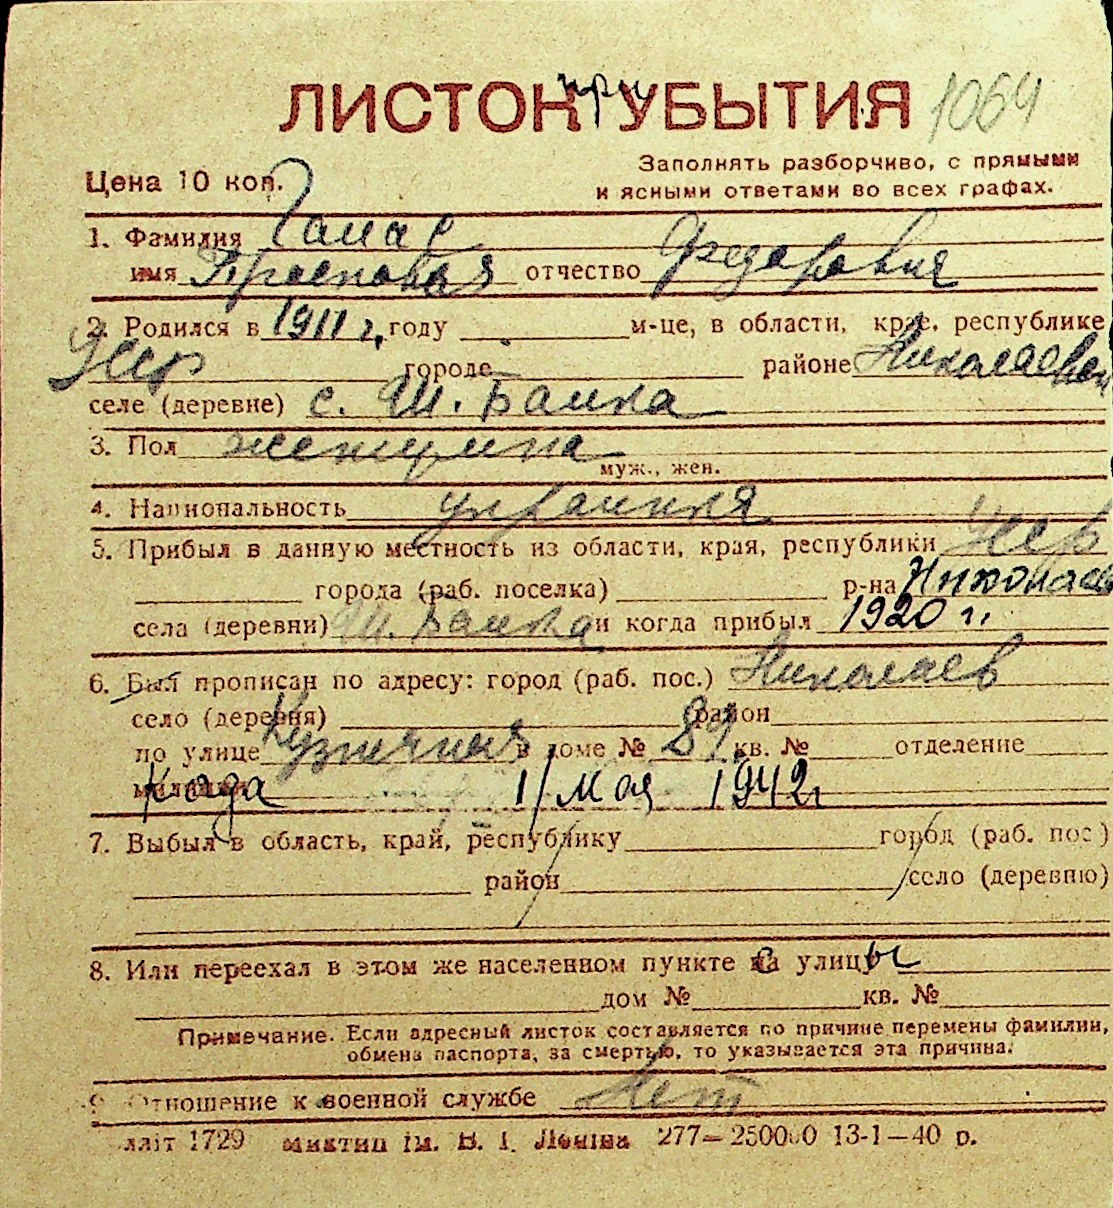 ЛИСТОК при УБЫТИЯ 1064
Цена 10 коп.
Заполнять разборчиво, с прямыми
и ясными ответами во всех графах.
1. Фамилия
имя отчество Федоровна
2. Родился в 1911 г. году м-це, в области, крае, республике
Усср городе районе Николаевском
селе (деревне) с. Ш. Балка
3. Пол женщина
муж., жен.
4. Национальность украинка
5. Прибыл в данную местность из области, края, республики Усср
города (раб. поселка) р-на Николаев
села (деревни) Ш. Балка и когда прибыл 1920 г.
6. Был прописан по адресу: город (раб. пос.) Николаев
село (деревня) район
по улице Кузнечная в доме № 89 кв. № отделение
милиции Когда 1/ Мая 1942 г
7. Выбыл в область, край, республику город (раб. пос)
район село (деревню)
8. Или переехал в этом же населенном пункте с улицы
дом № кв. №
Примечание. Если адресный листок составляется по причине перемены фамилии,
обмена паспорта, за смертью, то указывается эта причина.
9 Отношение к военной службе Нет
літ 1729 ім. В. І. Леніна 277—250000 13-1—40 р.